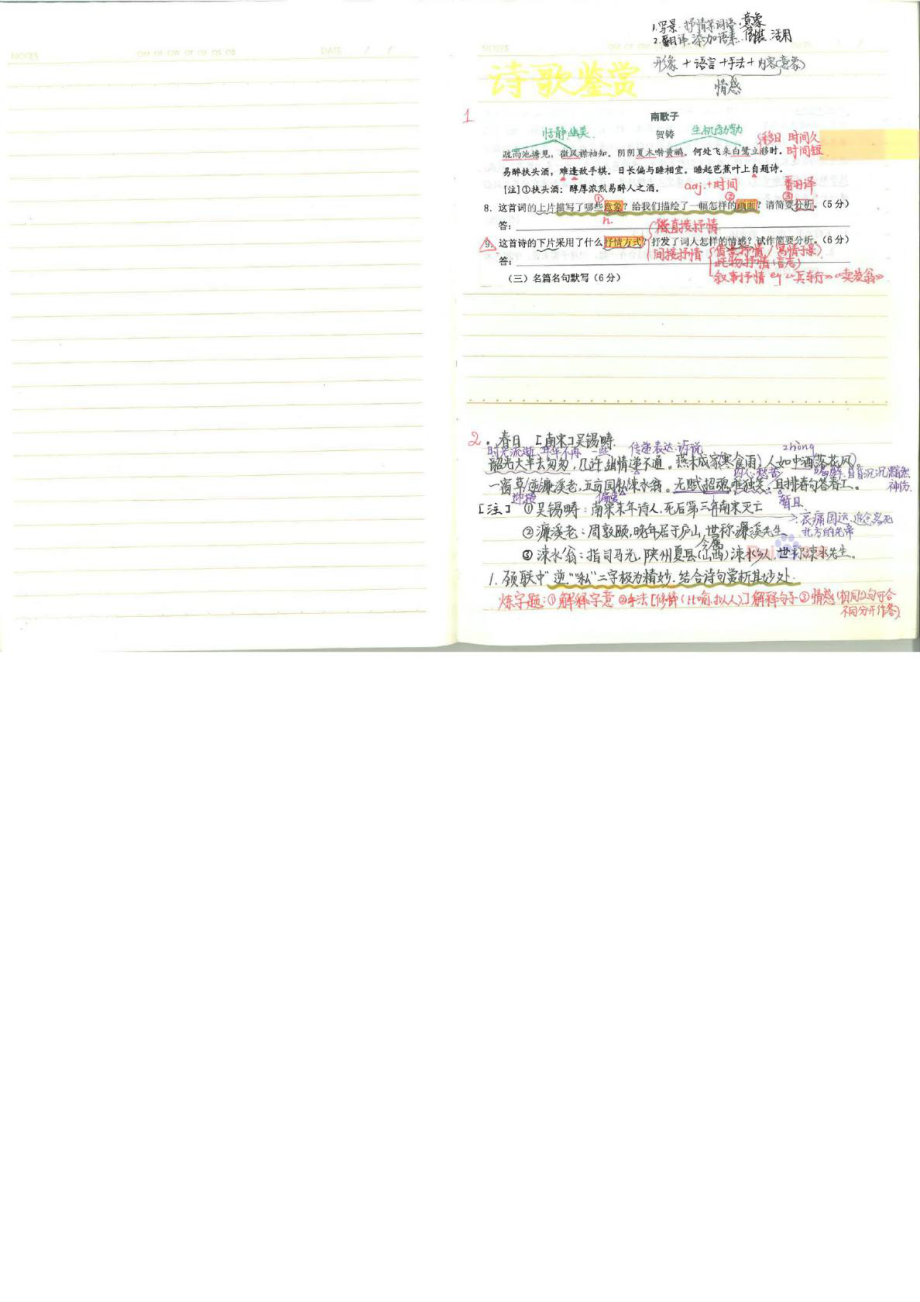 1.写景、抒情等词语、意象
2.翻译.添加语素. 活用
形象 + 语言 + 手法 + 内容(意象)
情感
诗歌鉴赏
1
南歌子
恬静幽美. 贺铸 生机 移日 时间久
疏雨池塘见，微风襟袖知。阴阴夏木啭黄鹂。何处飞来白鹭立移时。 时间短
易醉扶头酒，难逢敌手棋。日长偏与睡相宜。睡起芭蕉叶上自题诗。
[注]①扶头酒：醇厚浓烈易醉人之酒。 adj.+时间 翻译
① ② ③
8. 这首词的上片描写了哪些意象？给我们描绘了一幅怎样的画面？请简要分析。（5分）
答： n. 直接抒情
9. 这首诗的下片采用了什么抒情方式？抒发了词人怎样的情感？试作简要分析。（6分）
答： 间接抒情 借景抒情/寓情于景
托物抒情(言志)
（三）名篇名句默写（6分） 叙事抒情 eg《兵车行》《卖炭翁》
2 . 春日 [南宋]吴锡畴.
时光流逝 年华不再 一些 传递表达 诉说 zhòng
韶光大半去匆匆，几许幽情递不通。燕未成家寒食雨，人如中酒落花风。
内心愁苦
一窗草逆濂溪老，五亩园私涑水翁。无赋招魂成独笑，且排春句答春工。
暂且
[注] ①吴锡畴：南宋末年诗人，死后第三年南宋灭亡
哀痛国运，
②濂溪老：周敦颐，晚年居于庐山，世称濂溪先生. 北方的
今属
③涑水翁：指司马光，陕州夏县(山西)涑水乡人，世称涑水先生。
1. 颔联中“逆”“私”二字极为精妙.结合诗句赏析其妙处.
炼字题：①解释字意 ②手法[修辞(比喻.拟人)]解释句子 ③情感(相同以句可合
不同分开作答)